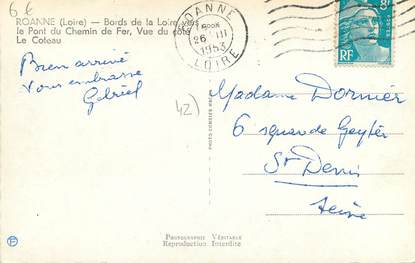 6 €
ROANNE (Loire) — Bords de la Loire vers
le Pont du Chemin de Fer, Vue du côté
Le Coteau
ROANNE
26 III
1953
LOIRE
8F
RF
Bien arrivé
Vous embrasse
Gabriel
42)
Madame Dormier
6 square de Geyter
St Denis
Seine
PHOTOGRAPHIE VÉRITABLE
Reproduction Interdite